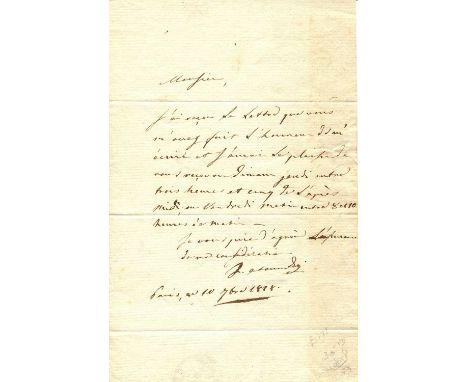 Monsieur,
J'ai reçu la Lettre que vous
m'avez fait l'honneur de m'
écrire et j'aurai le plaisir de
vous recevoir demain jeudi entre
trois heures et cinq de l'après
midi ou Vendredi matin entre 8 et 10
heures du matin
Je vous prie d'agréer l'assurance
de ma considération
Paris, ce 10 7bre 1828.